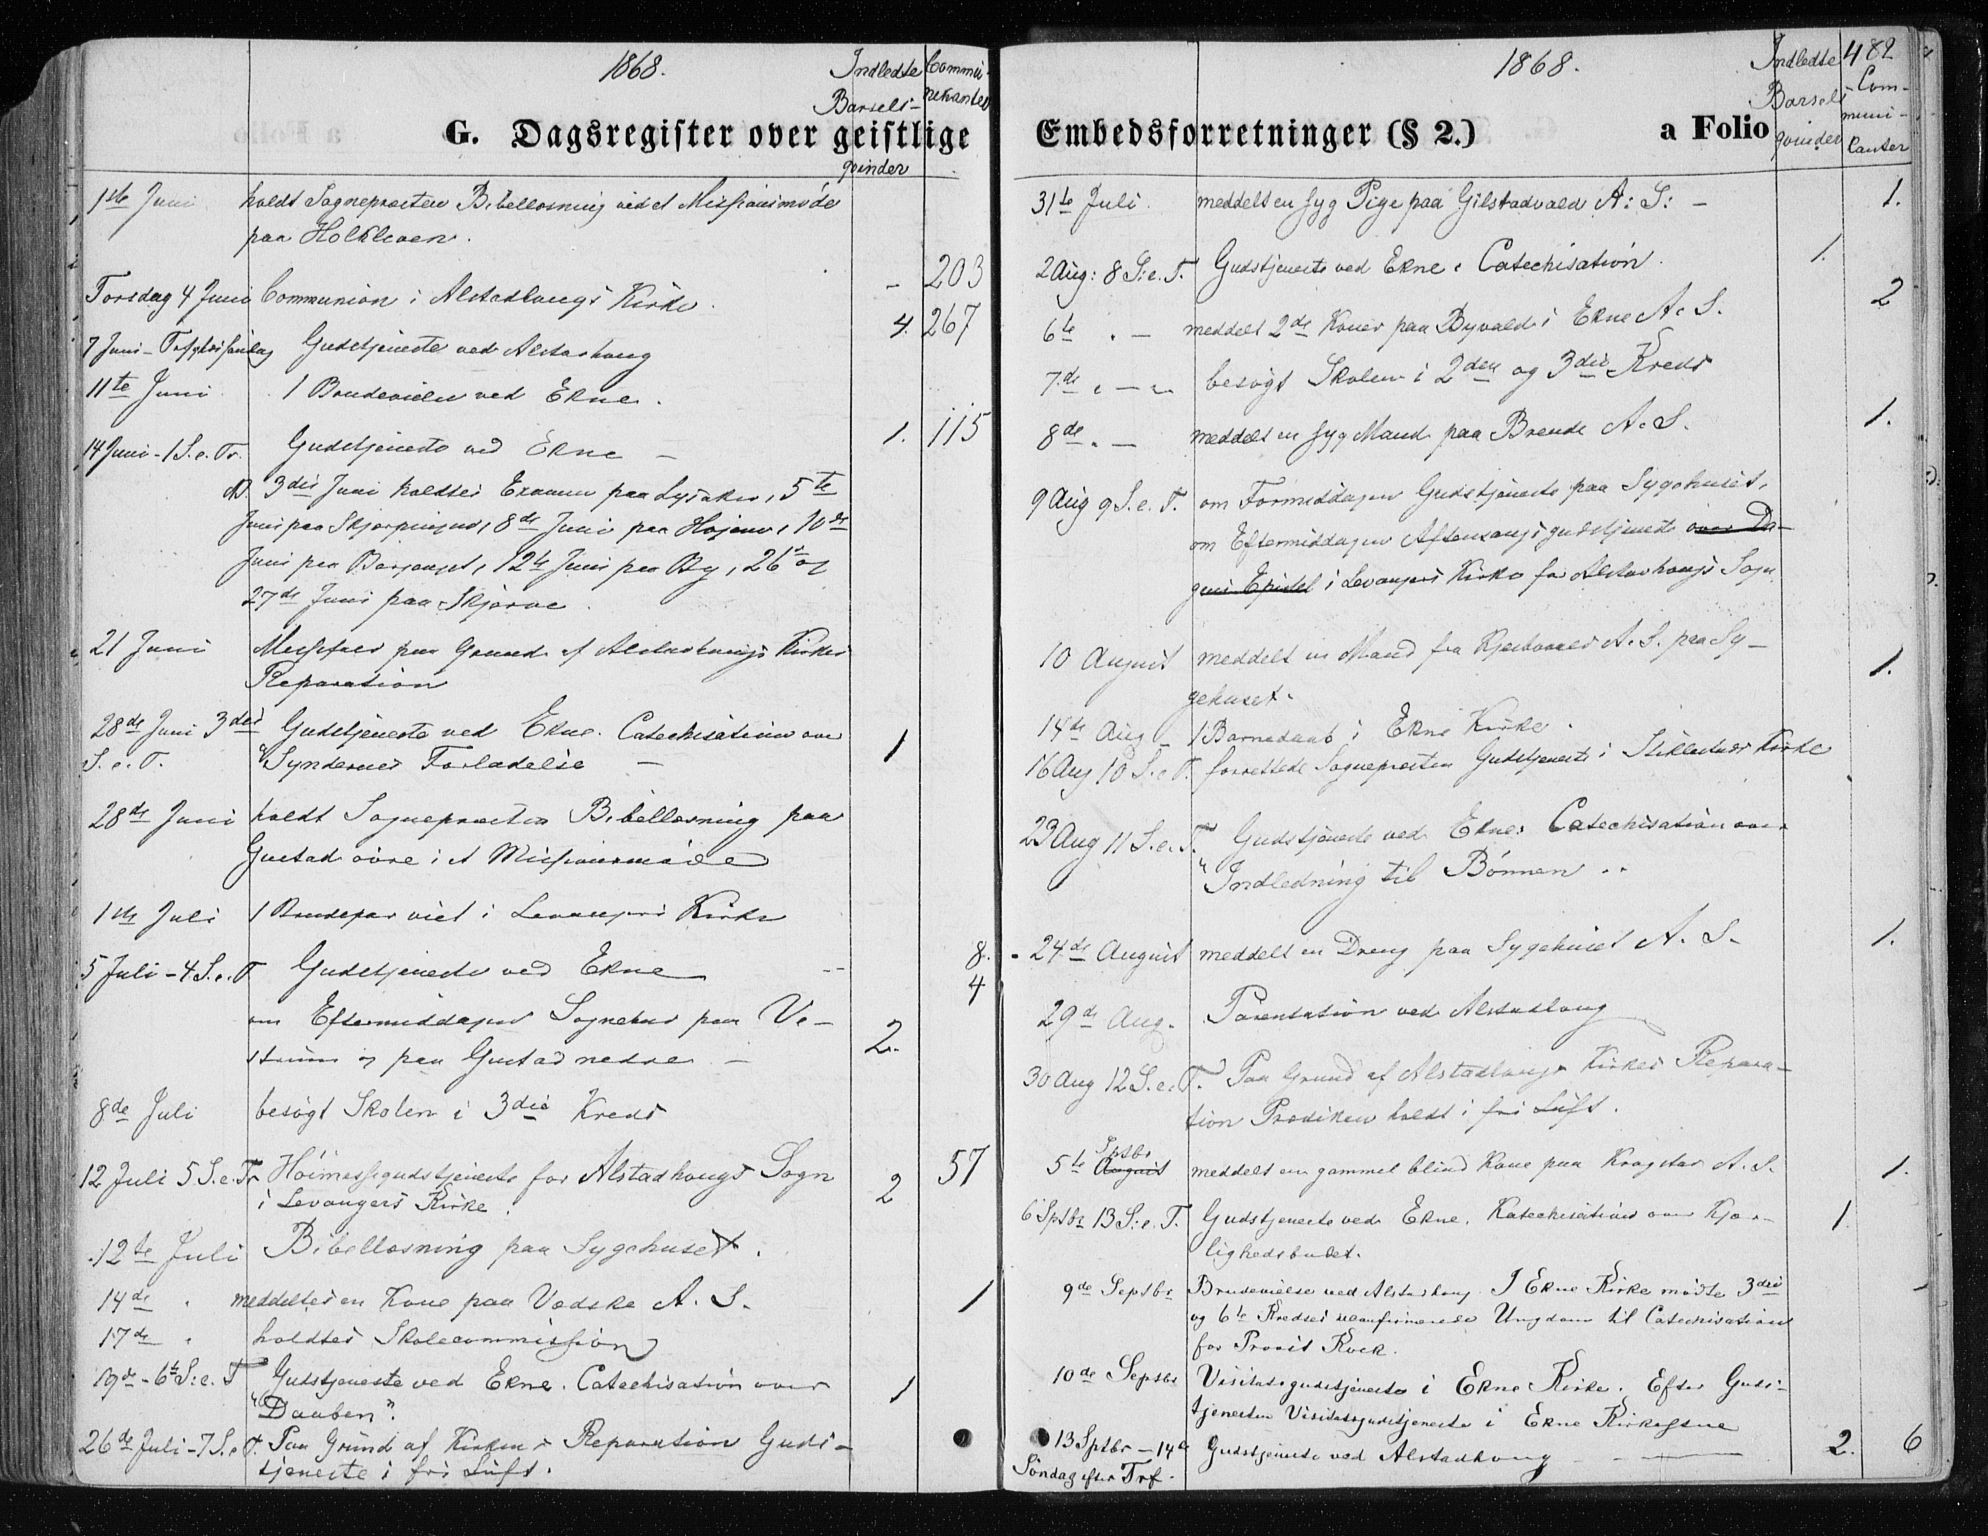 1868.
Indledte
Barsel-
qvinder
Commu-
nekanter
G. Dagsregister over geistlige
1ste Juni holdt Sognepræsten Bibellæsning ved et Missionsmøde
paa Holkleven.
203
Torsdag 4 Juni Communion i Alstadhougs Kirke. -
7 Juni - Trefoldi Søndag Gudstjeneste ved Alstadhaug 4. 267
11te Juni 1 Brudevielse ved Ekne.
14 Juni - 1 S. e. Tr. Gudstjeneste ved Ekne - 1. 115
3die Juni holdtes Examen paa Lysaker, 5te
Juni paa Skjerpingen, 8de Juni paa Hojem, 10de
Juni paa, 12te Juni paa By, 26de og
27de Juni paa Skjørve.
21 Juni Messefald paa Grund af Alstadhaugs Kirkes
Reparation
28de Juni 3die Gudstjeneste ved Ekne. Catechisation over
S. e. T. "Syndernes Forladelse - 1
28de Juni holdt Sognepræsten Bibellæsning paa
Gustad øvre i et Missionsmøde
1ste Juli 1 Brudepar viet i Levangers Kirke
5 Juli - 4 S. e. T Gudstjeneste ved Ekne 8.
4
om Eftermiddagen Sognebud paa Ve-
strum og paa Gustad nedre - 2.
8de Juli besøgt Skolen i 3die Kreds
12 Juli 5 S. e. Tr Høimessegudstjeneste for Alstadhougs Sogn 2 57
i Levangers Kirke.
12te Juli Bibellæsning paa Sygehuset.
14de " meddeltes en Kone paa Vedske A. S. 1
17de " holdtes Skolecommission
19de - 6te S: e. T Gudstjeneste ved Ekne. Catechisation over 1
"Daaben".
26de Juli - 7 S. e T. Paa Grund af Kirkens Reparation Guds-
tjeneste i fri Luft.
1868.
Indledte
Barsels-
qvinder
482
Com-
muni-
canter
Embedsforretninger (§ 2.) a Folio
31te Juli meddelt en syg Pige paa Gilstadvald A: S: - 1.
2 Aug: 8 S: e. T. Gudstjeneste ved Ekne. Catechisation. 1.
6te " - meddelt 2de Koner paa Byvald i Ekne A. S. 2
7de " - " besøgt Skolen i 2den og 3die Kreds
8de " - meddelt en syg Mand paa Brende A. S. 1.
9 Aug 9 S. e. T. om Formiddagen Gudstjeneste paa Sygehuset,
om Eftermiddagen Aftensangsgudstjeneste over Da-
gens Epistel i Levangers Kirke for Alstadhaugs Sogn
10 August meddelt en Mand fra A. S. paa Sy- 1.
gehuset.
14de Aug - 1 Barnedaab i Ekne Kirke.
16 Aug 10 S. e T. forrettede Sognepræsten Gudstjeneste i Stiklestads Kirke
23 Aug 11 S. e. T. Gudstjeneste ved Ekne. Catechisation over
"Indledning til Bønnen"
24de August meddelt en Dreng paa Sygehuset A. S. 1.
29de Aug. Parentation ved Alstadhoug
30 Aug 12 S. e. T. Paa Grund af Alstadhaugs Kirkes Repara-
tion Prædiken holdt i fri Luft.
Sptbr
5te August meddelt en gammel blind Kone paa Kragstad A. S. 1.
6 Sptbr 13 S. e. T. Gudstjeneste ved Ekne. Katechisation over Kjær- 1.
lighedsbudet.
9de Septbr Brudevielse ved Alstadhoug. I Ekne Kirke mødte 3die
og 6te Kredses uconfirmerede Ungdom til Catechisation
for Provst Kock.
10de Septbr Visitatsgudstjeneste i Ekne Kirke. Efter Guds-
tjenesten Visitatsgudstjeneste i Ekne
13 Sptbr - 14de Gudstjeneste ved Alstadhoug 2. 6
Søndag efter Tref.